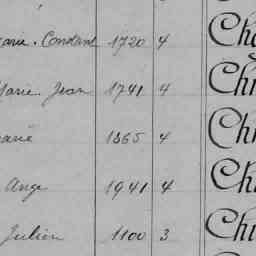 arie. Constant 1720 4 Cha
Marie Jean 1741 4 Ch
arie 1865 4 Ch
Ange 1941 4 Ch
Julien 1100 3 Ch